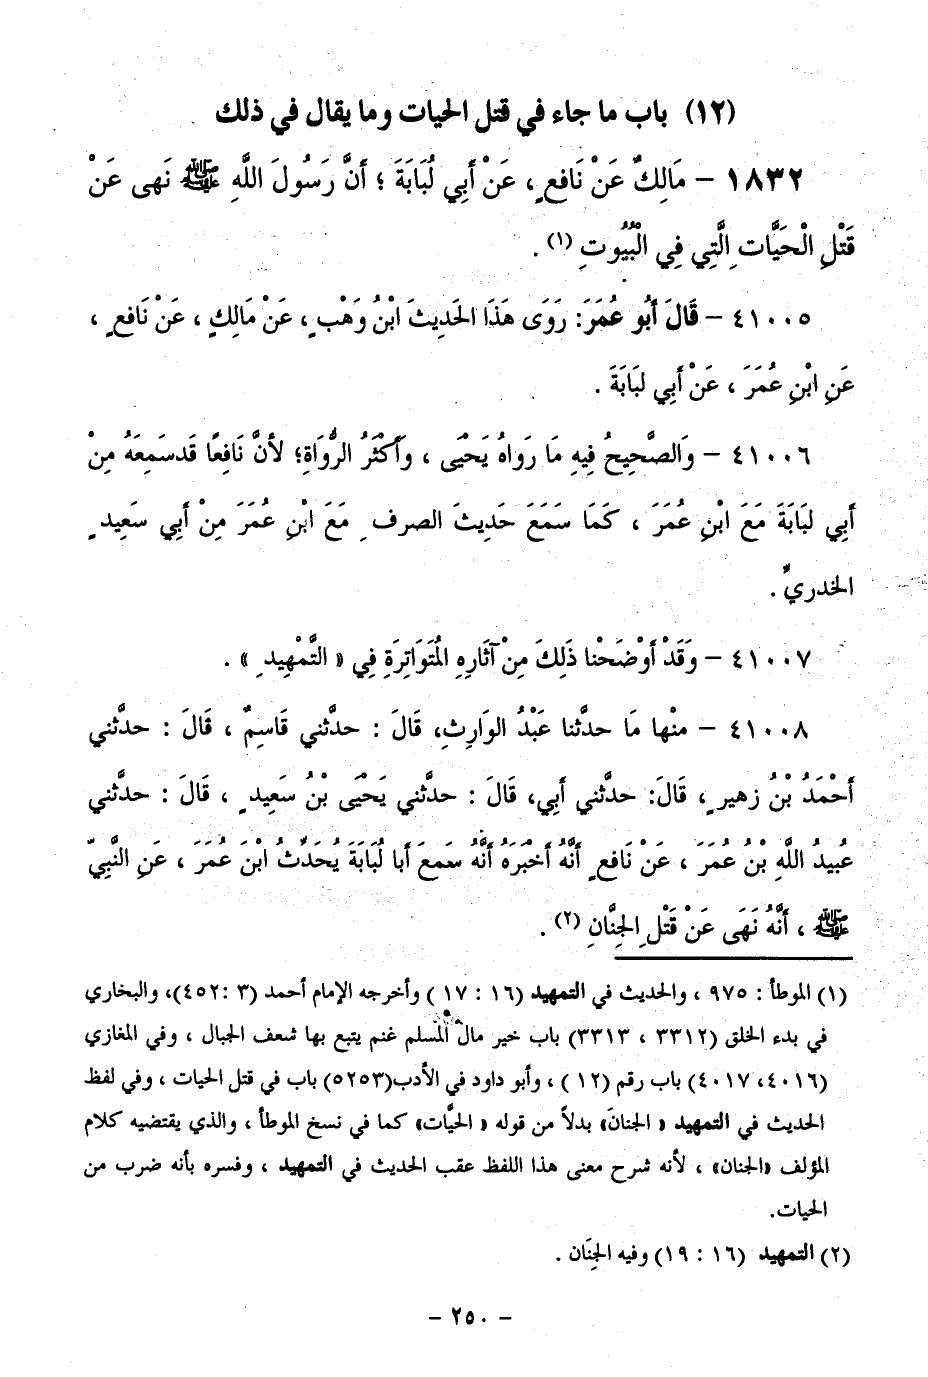 (١٢) باب ما جاء في قتل الحيات وما يقال في ذلك
١٨٣٢ – مَالِكٌ عَنْ نَافِعٍ، عَنْ أَبِي لُبَابَةَ ؛ أَنَّ رَسُولَ اللَّهِ ﷺ نَهى عَنْ
قَتْلِ الْحَيَّاتِ الَّتِي فِي الْبُيُوتِ (١) .
٤١٠٠٥ – قَالَ أَبُو عُمَرَ: رَوَى هَذَا الحَدِيثَ ابْنُ وَهْبٍ، عَنْ مَالِكٍ ، عَنْ نَافعٍ ،
عَنِ ابْنِ عُمَرَ ، عَنْ أَبِي لبَابَةَ .
٤١٠٠٦ – وَالصَّحِيحُ فِيهِ مَا رَوَاهُ يَحْيَى ، وَأَكْثَرُ الرُّوَاةِ؛ لأنَّ نَافِعًا قَد سَمِعَهُ مِنْ
أَبِي لبَابَةَ مَعَ ابْنِ عُمَرَ ، كَمَا سَمَعَ حَدِيثَ الصرفِ مَعَ ابْنِ عُمَرَ مِنْ أَبِي سَعِيدٍ
الخدريِّ .
٤١٠٠٧ – وَقَدْ أَوْضَحْنا ذَلِكَ مِنْ آثَارِهِ المُتَوَاتِرَةِ فِي « التَّمْهِيدِ » .
٤١٠٠٨ – منْها مَا حدَّثنا عَبْدُ الوَارِثِ، قَالَ : حدَّثني قَاسِمٌ ، قَالَ : حدَّثني
أَحْمَدُ بْنُ زهيرٍ، قَالَ: حدَّثني أَبِي، قَالَ : حدَّثني يَحْيَى بْنُ سَعِيدٍ ، قَالَ : حدَّثني
عُبيدُ اللَّهِ بْنُ عُمَرَ ، عَنْ نَافعٍ أَنَّهُ أَخْبَرَهُ أَنَّهُ سَمعَ أبا لُبَابَةَ يُحَدِّثُ ابْنَ عمَرَ ، عَنِ النَّبِيِّ
ﷺ ، أَنَّهُ نَهَى عَنْ قَتْلِ الجِنَّانِ (٢) .
(١) الموطأ : ٩٧٥ ، والحديث في التمهيد (١٦ : ١٧ ) وأخرجه الإمام أحمد (٣ :٤٥٢)، والبخاري
في بدء الخلق (٣٣١٢ ، ٣٣١٣) باب خير مال المسلم غنم يتبع بها شعف الجبال ، وفي المغازي
(٤٠١٦، ٤٠١٧) باب رقم (١٢ ) ، وأبو داود في الأدب(٥٢٥٣) باب في قتل الحيات ، وفي لفظ
الحديث في التمهيد « الجنانَ» بدلاً من قوله « الحيَّات» كما في نسخ الموطأ ، والذي يقتضيه كلام
المؤلف «الجنان» ، لأنه شرح معنى هذا اللفظ عقب الحديث في التمهيد ، وفسره بأنه ضرب من
الحيات.
(٢) التمهيد (١٦ : ١٩) وفيه الجِنَان .
– ٢٥٠ –